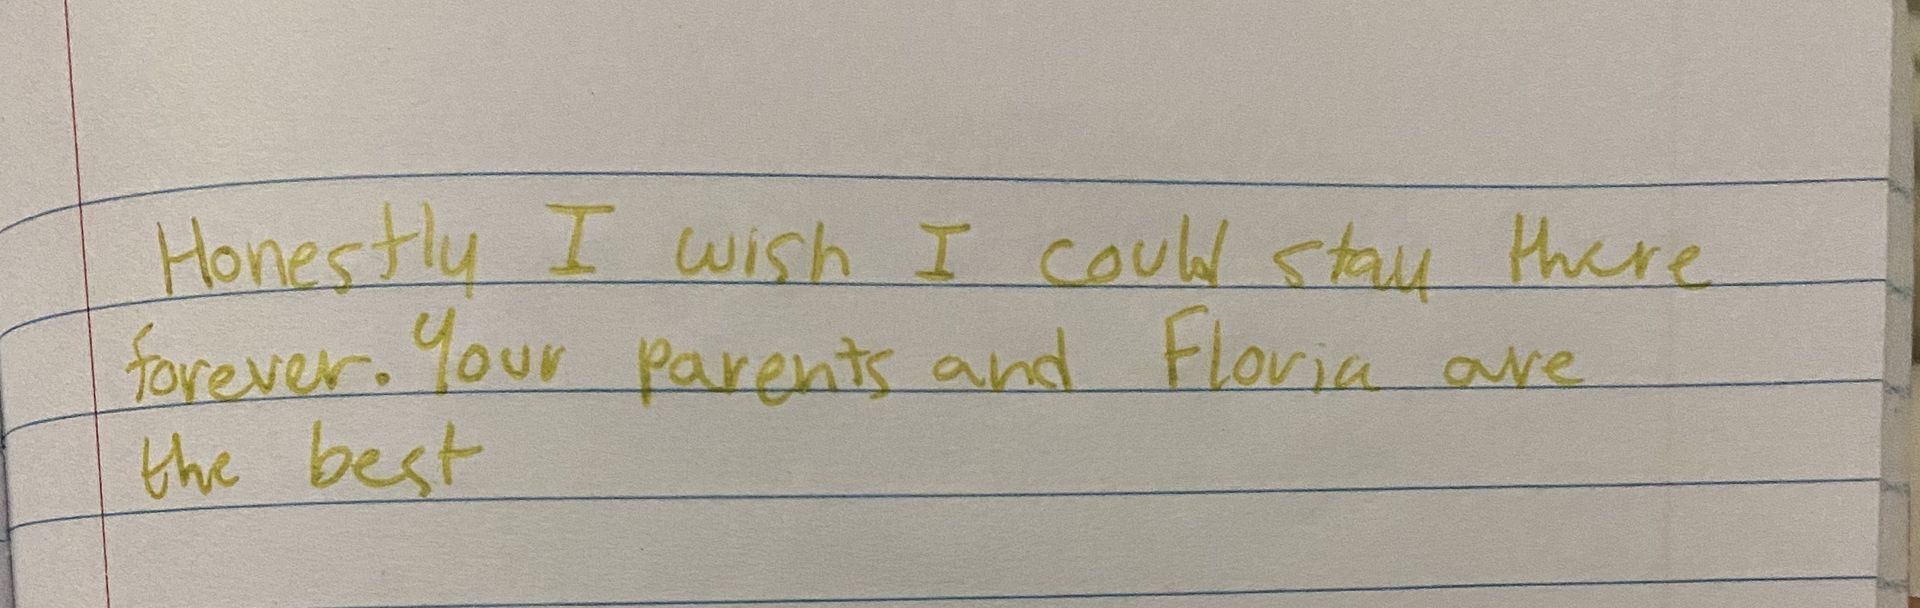 Honestly I wish I could stay there
forever. Your parents and Floria are
the best